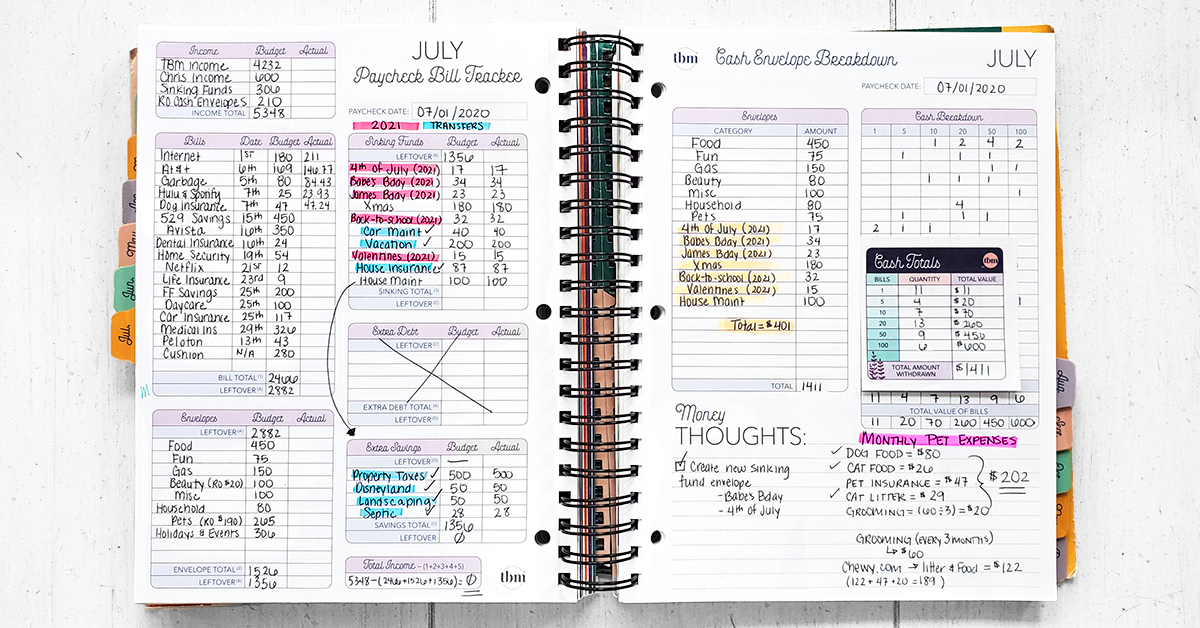 Income Budget Actual
TBM Income 4232
Chris Income 600
Sinking Funds 306
RO Cash Envelopes 210
INCOME TOTAL 5348
Bills Date Budget Actual
Internet 1st 180 211
At&t 6th 169 146.77
Garbage 5th 80 84.43
Hulu & Spotify 7th 25 23.93
Dog Insurance 7th 47 47.24
529 Savings 15th 450
Avista 16th 350
Dental Insurance 16th 24
Home Security 19th 54
Netflix 21st 12
Life Insurance 23rd 9
FF Savings 25th 200
Daycare 25th 100
Car Insurance 25th 117
Medical Ins 29th 326
Peloton 13th 43
Cushion N/A 280
BILL TOTAL (1) 2466
LEFTOVER (A) 2882
M
Envelopes Budget Actual
LEFTOVER (A) 2882
Food 450
Fun 75
Gas 150
Beauty (RO $20) 100
Misc 100
Household 80
Pets (RO $190) 265
Holidays & Events 306
ENVELOPE TOTAL (2) 1526
LEFTOVER (B) 1356
JULY
Paycheck Bill Tracker
PAYCHECK DATE: 07/01/2020
2021 TRANSFERS
Sinking Funds Budget Actual
LEFTOVER (B) 1356
4th of July (2021) 17 17
Babe's Bday (2021) 34 34
James Bday (2021) 23 23
Xmas 180 180
Back-to-school (2021) 32 32
Car Maint ✓ 40 40
Vacation ✓ 200 200
Valentines (2021) 15 15
House Insurance ✓ 87 87
House Maint 100 100
SINKING TOTAL (3)
LEFTOVER (C)
Extra Debt Budget Actual
LEFTOVER (C)
EXTRA DEBT TOTAL (4)
LEFTOVER (D)
Extra Savings Budget Actual
LEFTOVER (D) —
Property Taxes ✓ 500 500
Disneyland ✓ 50 50
Landscaping ✓ 50 50
Septic ✓ 28 28
SAVINGS TOTAL (5) 1356
LEFTOVER 0
Total Income - (1+2+3+4+5)
5348-(2466+1526+1356)= 0
tbm
May
Jun
Jul
tbm Cash Envelope Breakdown JULY
PAYCHECK DATE: 07/01/2020
Envelopes
CATEGORY AMOUNT
Food 450
Fun 75
Gas 150
Beauty 80
Misc 100
Household 80
Pets 75
4th of July (2021) 17
Babe's Bday (2021) 34
James Bday (2021) 23
Xmas 180
Back-to-school (2021) 32
Valentines (2021) 15
House Maint 100
Total = $401
TOTAL 1411
Cash Breakdown
1 5 10 20 50 100
1 2 4 2
1 1 1
1 1 1
1 1 1
1
4
1 1 1
2 1 1
Cash Totals tbm
BILLS QUANTITY TOTAL VALUE
1 11 $11
5 4 $20
10 7 $70
20 13 $260
50 9 $450
100 6 $600
TOTAL AMOUNT WITHDRAWN $1411
1
11 4 7 13 9 6
TOTAL VALUE OF BILLS
11 20 70 260 450 600
Money
THOUGHTS:
☑ Create new sinking
fund envelope
- Babe's Bday
- 4th of July
MONTHLY PET EXPENSES
✓ DOG FOOD = $80
✓ CAT FOOD = $26
PET INSURANCE = $47
✓ CAT LITTER = $29
GROOMING = (60÷3) = $20
$202
GROOMING (EVERY 3 MONTHS)
↳ $60
Chewy.com → litter & Food = $122
(122+47+20=189)
Aug
Sep